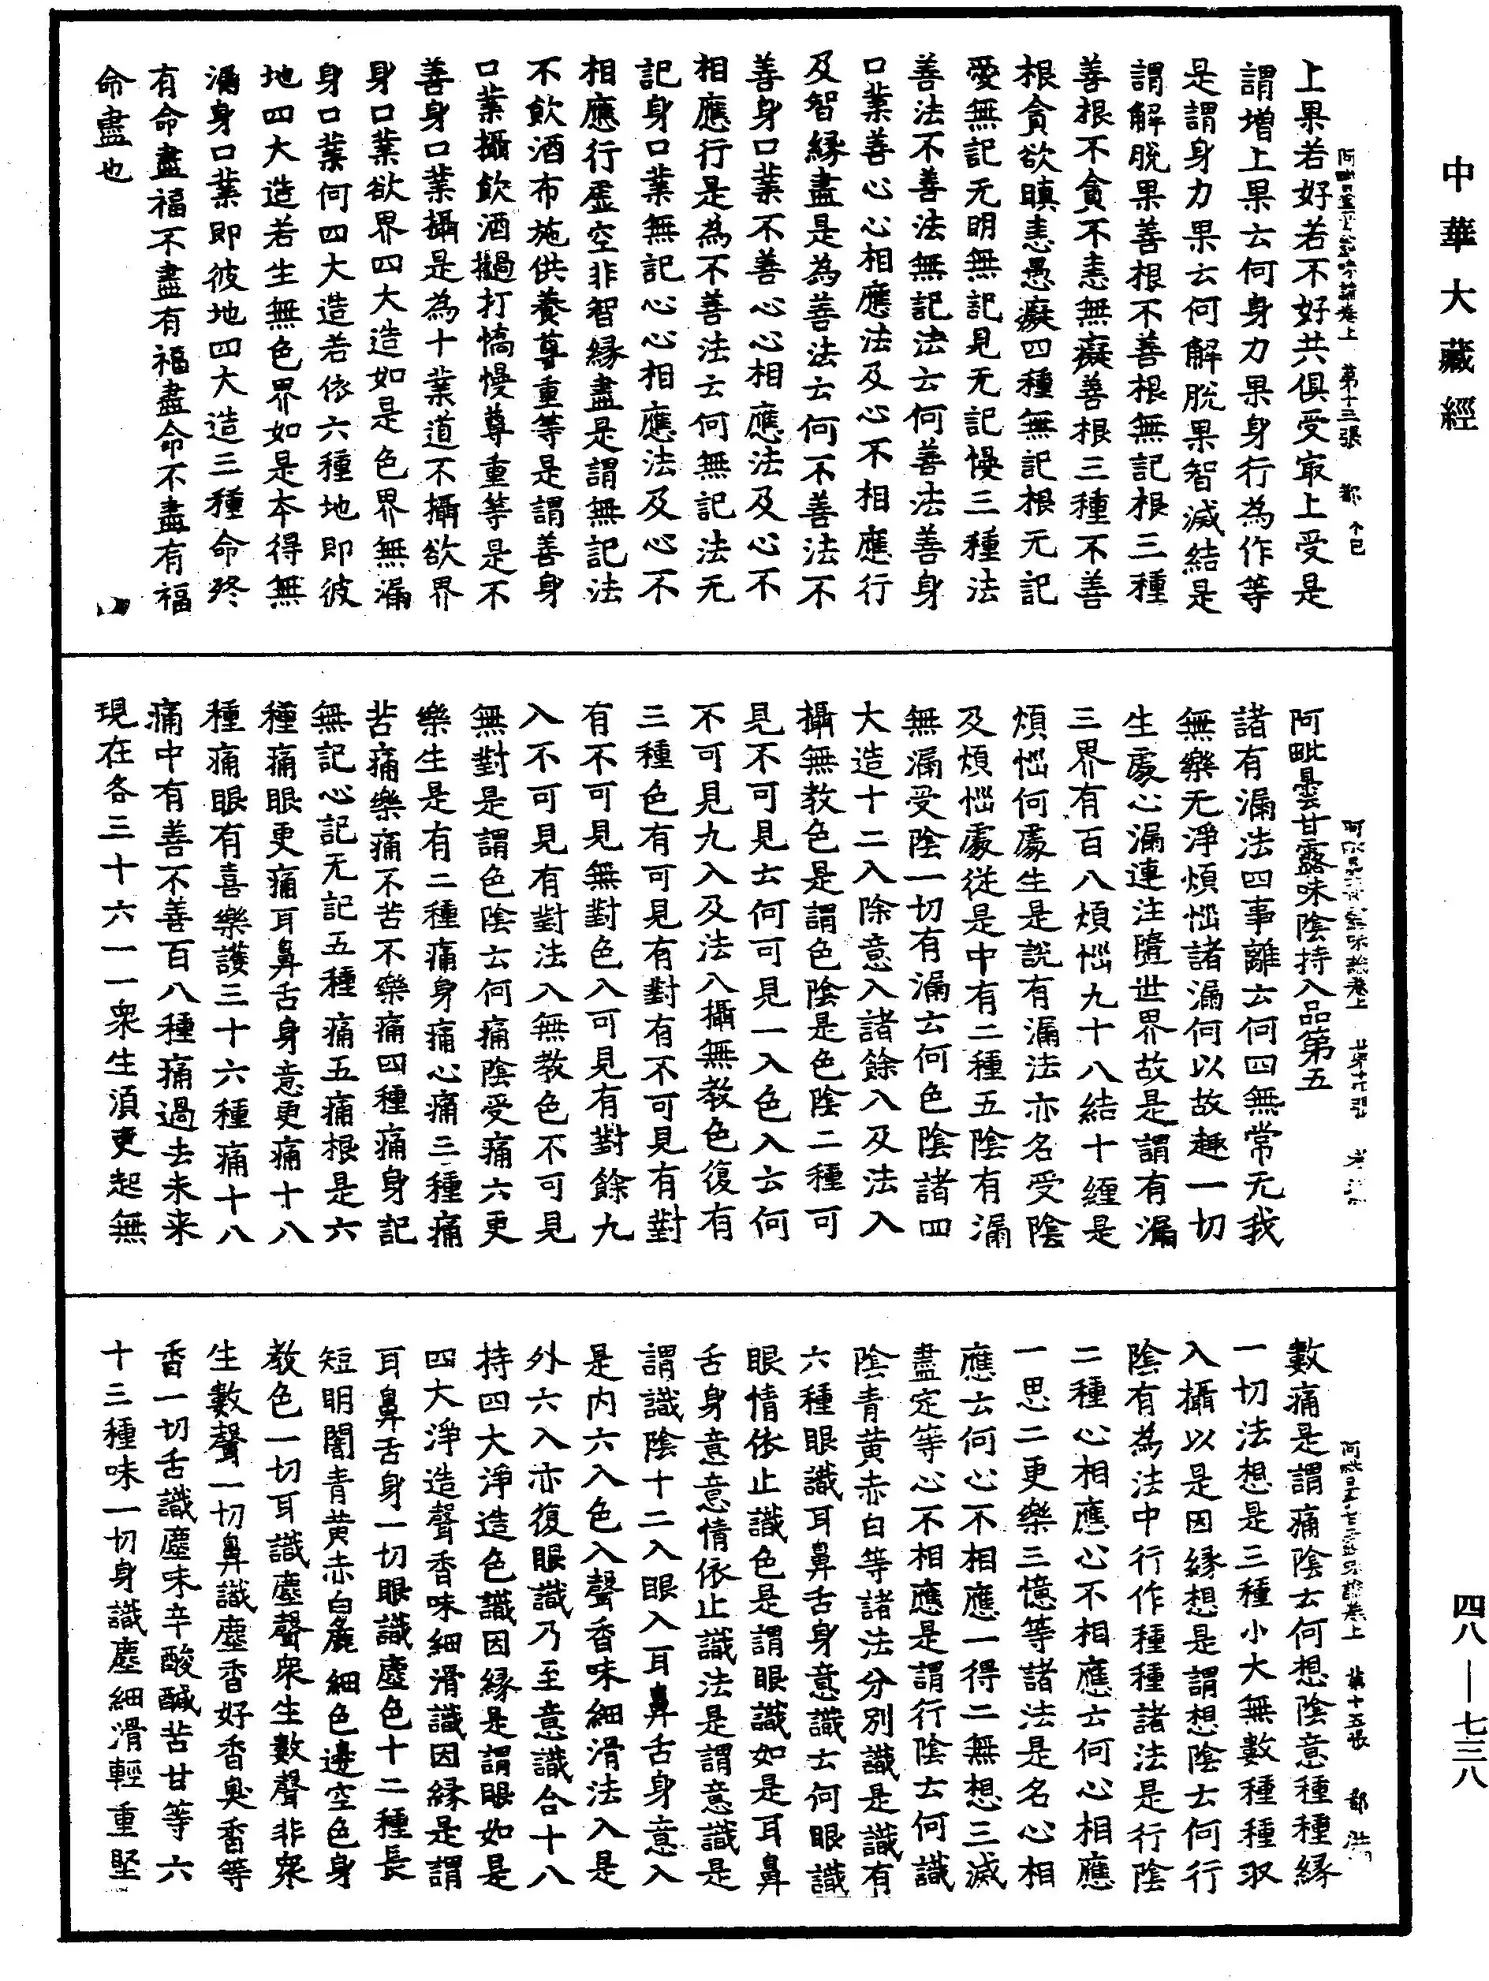 中華大藏經
四八—七三八
上果若好若不好共俱受㝡上受是
謂增上果云何身力果身行為作等
是謂身力果云何解脫果智滅結是
謂解脫果善根不善根無記根三種
善根不貪不恚無癡善根三種不善
根貪欲瞋恚愚癡四種無記根无記
愛無記无明無記見无記慢三種法
善法不善法無記法云何善法善身
口業善心心相應法及心不相應行
及智緣盡是為善法云何不善法不
善身口業不善心心相應法及心不
相應行是為不善法云何無記法无
記身口業無記心心相應法及心不
相應行虛空非智緣盡是謂無記法
不飲酒布施供養尊重等是謂善身
口業攝飲酒撾打憍慢尊重等是不
善身口業攝是為十業道不攝欲界
身口業欲界四大造如是色界無漏
身口業何四大造若依六種地即彼
地四大造若生無色界如是本得無
漏身口業即彼地四大造三種命終
有命盡福不盡有福盡命不盡有福
命盡也
阿毗曇甘露味陰持入品第五
諸有漏法四事離云何四無常无我
無樂无淨煩惱諸漏何以故趣一切
生處心漏連注墮世界故是謂有漏
三界有百八煩惱九十八結十纏是
煩惱何處生是說有漏法亦名受陰
及煩惱處從是中有二種五陰有漏
無漏受陰一切有漏云何色陰諸四
大造十二入除意入諸餘入及法入
攝無教色是謂色陰是色陰二種可
見不可見云何可見一入色入云何
不可見九入及法入攝無教色復有
三種色有可見有對有不可見有對
有不可見無對色入可見有對餘九
入不可見有對法入無教色不可見
無對是謂色陰云何痛陰受痛六更
樂生是有二種痛身痛心痛三種痛
苦痛樂痛不苦不樂痛四種痛身記
無記心記无記五種痛五痛根是六
種痛眼更痛耳鼻舌身意更痛十八
種痛眼有喜樂護三十六種痛十八
痛中有善不善百八種痛過去未来
現在各三十六一一衆生湏更起無
數痛是謂痛陰云何想陰意種種緣
一切法想是三種小大無數種種取
入攝以是因緣想是謂想陰云何行
陰有為法中行作種種諸法是行陰
二種心相應心不相應云何心相應
一思二更樂三憶等諸法是名心相
應云何心不相應一得二無想三滅
盡定等心不相應是謂行陰云何識
陰青黃赤白等諸法分別識是識有
六種眼識耳鼻舌身意識云何眼識
眼情依止識色是謂眼識如是耳鼻
舌身意意情依止識法是謂意識是
謂識陰十二入眼入耳鼻舌身意入
是内六入色入聲香味細滑法入是
外六入亦復眼識乃至意識合十八
持四大淨造色識因緣是謂眼如是
四大淨造聲香味細滑識因緣是謂
耳鼻舌身一切眼識塵色十二種長
短明闇青黃赤白麁細色邊空色身
教色一切耳識塵聲衆生數聲非衆
生數聲一切鼻識塵香好香臭香等
香一切舌識塵味辛酸鹹苦甘等六
十三種味一切身識塵細滑輕重堅